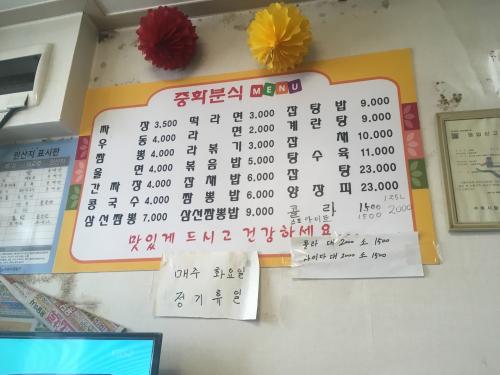 중화분식 MENU
짜장 3,500
우동 4,000
짬뽕 4,000
울면 4,000
간짜장 4,000
콩국수 4,000
삼선짬뽕 7,000
떡라면 3,000
라면 2,000
라볶기 3,000
볶음밥 5,000
잡채밥 6,000
짬뽕밥 6,000
삼선짬뽕밥 9,000
잡탕밥 9,000
계란탕 9,000
잡채 10,000
탕수육 11,000
잡탕 23,000
양장피 23,000
콜라 1500 1.25L
스프라이트 1500 2000
맛있게 드시고 건강하세요
콜라 대 2000 소 1500
사이다 대 2000 소 1500
매주 화요일
정기휴일
원산지 표시판